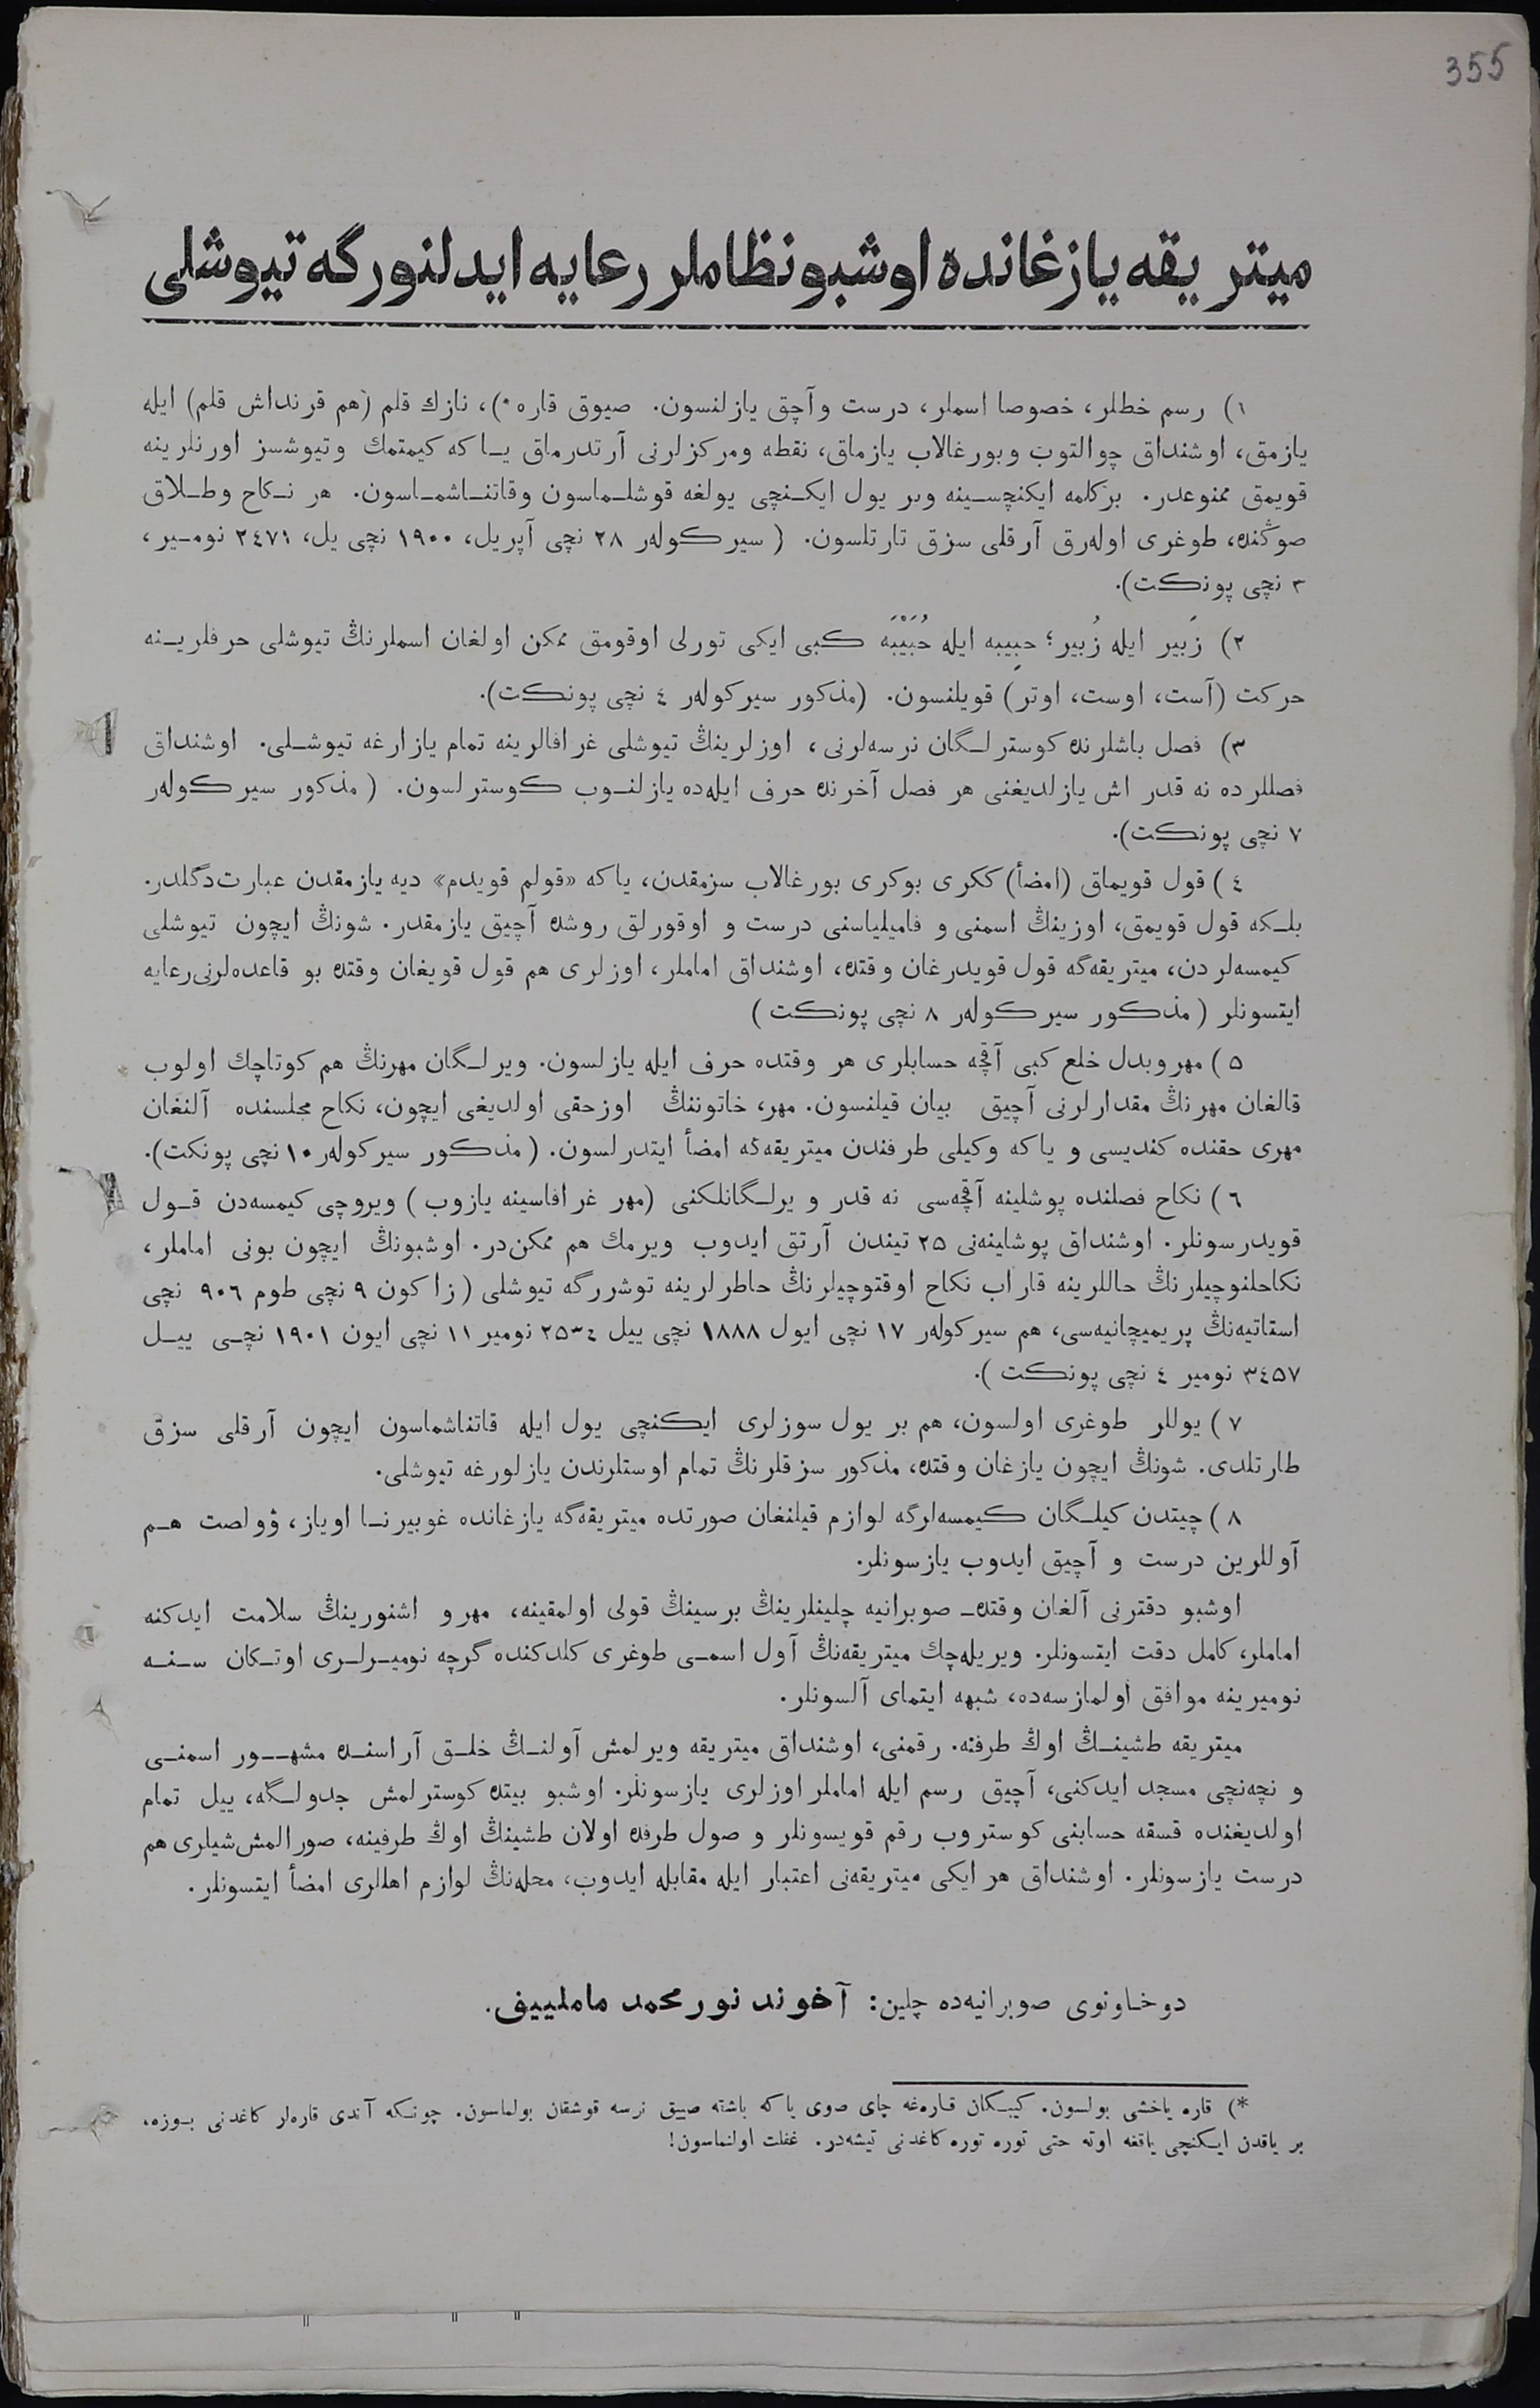 355
ميتريقه يازغانده اوشبو نظاملر رعايه ايدلنورگه تيوشلى
١) رسم خطلر، خصوصا اسملر، درست وآچق يازلنسون. صيوق قاره *)، نازك قلم (هم قرنداش قلم) ايله
يازمق، اوشنداق چوالتوب وبورغالاب يازماق، نقطه ومركزلرنى آرتدرماق يـاكه كيمتمك وتيوشسز اورنلرينه
قويمق ممنوعدر. بركلمه ايكنچسـينه وبر يول ايكـنچى يولغه قوشلـماسون وقاتنـاشمـاسون. هر نـكاح وطـلاق
صوڭنده، طوغرى اولەرق آرقلى سزق تارتلسون. (سيركولەر ٢٨ نچى آپريل، ١٩٠٠ نچى يل، ٢٤٧١ نومـير،
٣ نچى پونكت).
٢) زَبير ايله زُبير؛ حبِيبه ايله حُبَيْبَه كبى ايكى تورلى اوقومق ممكن اولغان اسملرنڭ تيوشلى حرفلريـنه
حركت (آست، اوست، اوتر) قويلنسون. (مذكور سيركولەر ٤ نچى پونكت).
٣) فصل باشلرنده كوسترلـگان نرسەلرنى، اوزلرينڭ تيوشلى غرافالرينه تمام يازارغه تيوشـلى. اوشنداق
فصللرده نه قدر اش يازلديغنى هر فصل آخرنده حرف ايلەده يازلنـوب كوسترلسون. (مذكور سيركولەر
٧ نچى پونكت).
٤) قول قويماق (امضأ) ككرى بوكرى بورغالاب سزمقدن، ياكه «قولم قويدم» ديه يازمقدن عبارت دگلدر.
بلـكه قول قويمق، اوزينڭ اسمنى و فاميلياسنى درست و اوقورلق روشده آچيق يازمقدر. شونڭ ايچون تيوشلى
كيمسەلردن، ميتريقەگه قول قويدرغان وقتده، اوشنداق اماملر، اوزلرى هم قول قويغان وقتده بو قاعدەلرنى رعايه
ايتسونلر (مذكور سيركولەر ٨ نچى پونكت)
٥) مهر وبدل خلع كبى آقچه حسابلرى هر وقتده حرف ايله يازلسون. ويرلـگان مهرنڭ هم كوتاچك اولوب
قالغان مهرنڭ مقدارلرنى آچيق بيان قيلنسون. مهر، خاتوننڭ اوزحقى اولديغى ايچون، نكاح مجلسنده آلنغان
مهرى حقنده كنديسى و ياكه وكيلى طرفندن ميتريقەگه امضأ ايتدرلسون. (مذكور سيركولەر ١٠ نچى پونكت).
٦) نكاح فصلنده پوشلينه آقچەسى نه قدر و يرلـگانلكنى (مهر غرافاسينه يازوب) ويروچى كيمسەدن قـول
قويدرسونلر. اوشنداق پوشلينەنى ٢٥ تيندن آرتق ايدوب ويرمك هم ممكن در. اوشبونڭ ايچون بونى اماملر،
نكاحلنوچيلرنڭ حاللرينه قاراب نكاح اوقتوچيلرنڭ خاطرلرينه توشررگه تيوشلى (زاكون ٩ نچى طوم ٩٠٦ نچى
استاتيەنڭ پريميچانيەسى، هم سيركولەر ١٧ نچى ايول ١٨٨٨ نچى ييل ٢٥٣٤ نومير ١١ نچى ايون ١٩٠١ نچـى ييـل
٣٤٥٧ نومير ٤ نچى پونكت).
٧) يوللر طوغرى اولسون، هم بر يول سوزلرى ايكنچى يول ايله قاتناشماسون ايچون آرقلى سزق
طارتلدى. شونڭ ايچون يازغان وقتده، مذكور سزقلرنڭ تمام اوستلرندن يازلورغه تيوشلى.
٨) چيتدن كيلـگان كيمسەلرگه لوازم قيلنغان صورتده ميتريقەگه يازغانده غوبيرنـا اوياز، ۋولصت هـم
آوللرين درست و آچيق ايدوب يازسونلر.
اوشبو دفترنى آلغان وقتده ـ صوبرانيه چلينلرينڭ برسينڭ قولى اولمقينه، مهر و اشنورينڭ سلامت ايدكنه
اماملر، كامل دقت ايتسونلر. ويريلەچك ميتريقەنڭ آول اسمـى طوغرى كلدكنده گرچه نوميـرلـرى اوتـكان سـنـه
نوميرينه موافق اولمازسەده، شبهه ايتماى آلسونلر.
ميتريقه طشينـڭ اوڭ طرفنه. رقمنى، اوشنداق ميتريقه ويرلمش آولنـڭ خلـق آراسنـده مشهــور اسمنـى
و نچەنچى مسجد ايدكنى، آچيق رسم ايله اماملر اوزلرى يازسونلر. اوشبو بيتده كوسترلمش جدولـگه، ييل تمام
اولديغنده قسقه حسابنى كوستروب رقم قويسونلر و صول طرفده اولان طشينڭ اوڭ طرفينه، صورالمش شيلرى هم
درست يازسونلر. اوشنداق هر ايكى ميتريقەنى اعتبار ايله مقابله ايدوب، محلەنڭ لوازم اهللرى امضأ ايتسونلر.
دوخاونوى صوبرانيەده چلين: آخوند نورمحمد ماملييف.
*) قاره ياخشى بولسون. كيبـكان قارەغه چاى صوى ياكه باشته صييق نرسه قوشقان بولماسون. چونـكه آندى قارەلر كاغدنى بـوزه،
بر ياقدن ايـكنچى ياقغه اوته حتى توره توره كاغدنى تيشەدر. غفلت اولنماسون!